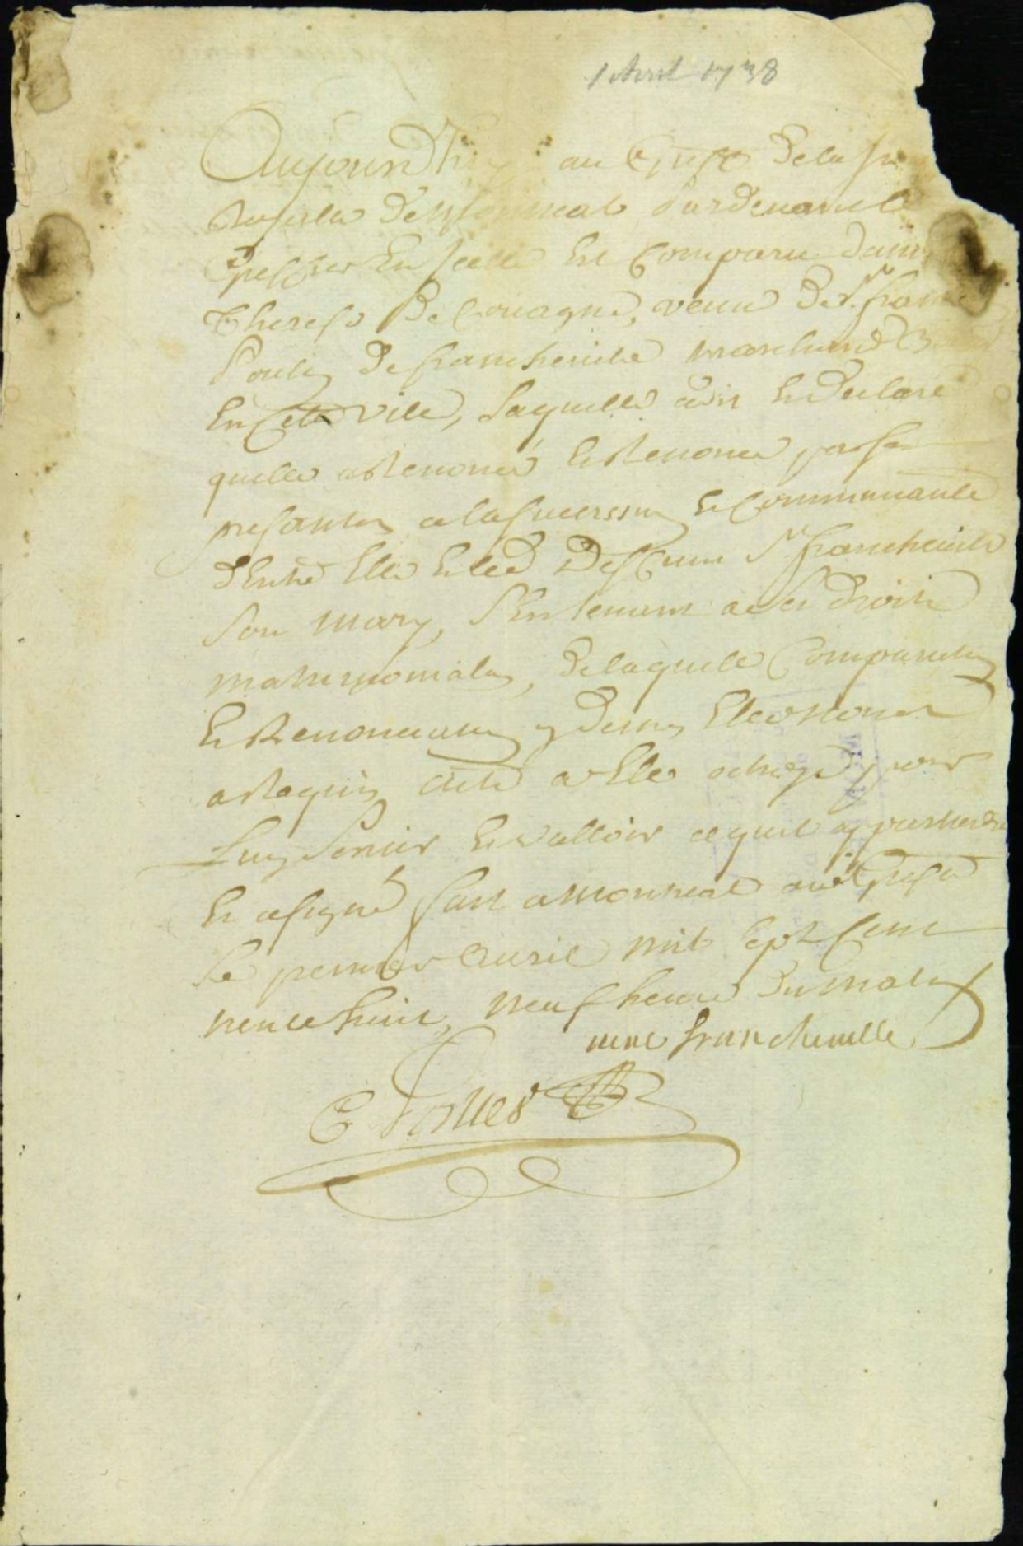 1 Avril 1738
Aujourdhuy au Greffe de la Ju
Royalle de Montreal Pardevant le
Greffier En Icelle Est Comparu dame
Therese De Couagne, veuve De Sr. franc
Poulin De francheville marchand
En Cette Ville, Laquelle a dit Et Declaré
quelle a Renoncé Et Renonce par se
presantes a la succession Et Communauté
d'Entre Elle Et led. Deffunt Sr. francheville
Son mary, S'En tenant a ses droits
matrimoniales, De laquelle Comparution
Et Renonciation Elle
a Requis acte a Elle octroyé pour
Luy Servir Et valloir ce que il appartiendra
Et a signé fait a Montreal aud. Greffe
Le premier Avril mil Sept Cent
trente huit, neuf heure Du matin
veuve francheville
C Porlier